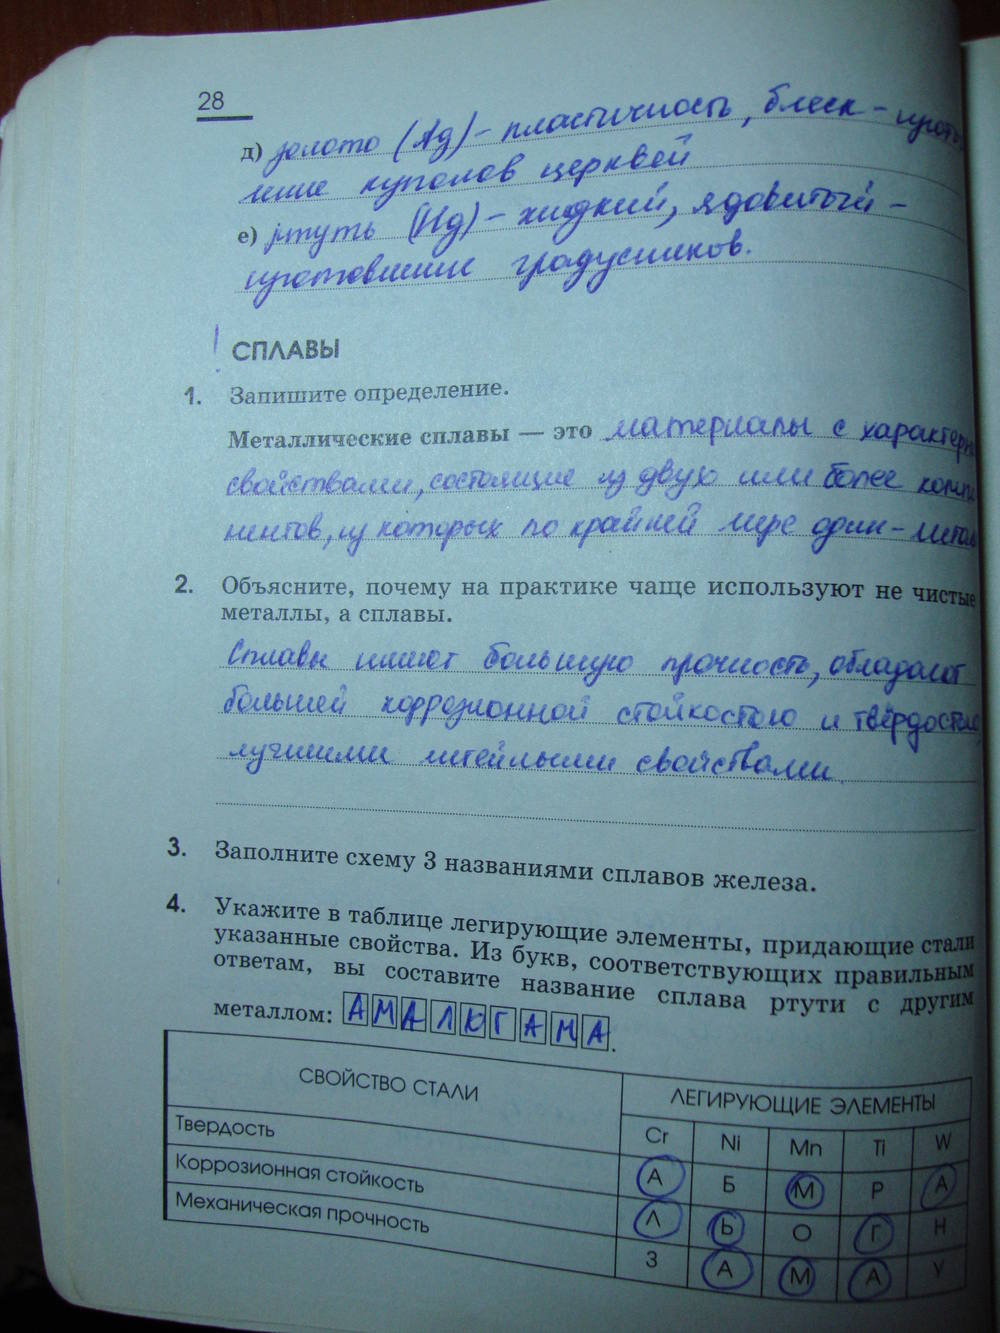 28
д) золото (Ag) – пластичность, блеск – изготов
ление куполов церквей
е) ртуть (Hg) – жидкий, ядовитый –
изготовление градусников.
СПЛАВЫ
1. Запишите определение.
Металлические сплавы — это материалы с характерн
свойствами, состоящие из двух или более компо
нентов, из которых по крайней мере один – металл
2. Объясните, почему на практике чаще используют не чистые
металлы, а сплавы.
Сплавы имеют большую прочность, обладают
большей коррозионной стойкостью и твёрдостью,
лучшими литейными свойствами
3. Заполните схему 3 названиями сплавов железа.
4. Укажите в таблице легирующие элементы, придающие стали
указанные свойства. Из букв, соответствующих правильным
ответам, вы составите название сплава ртути с другим
металлом: АМАЛЮГАМА.
СВОЙСТВО СТАЛИ ЛЕГИРУЮЩИЕ ЭЛЕМЕНТЫ
Cr Ni Mn Ti W
Твердость А Б М Р А
Коррозионная стойкость Л Ь О Г Н
Механическая прочность З А М А У